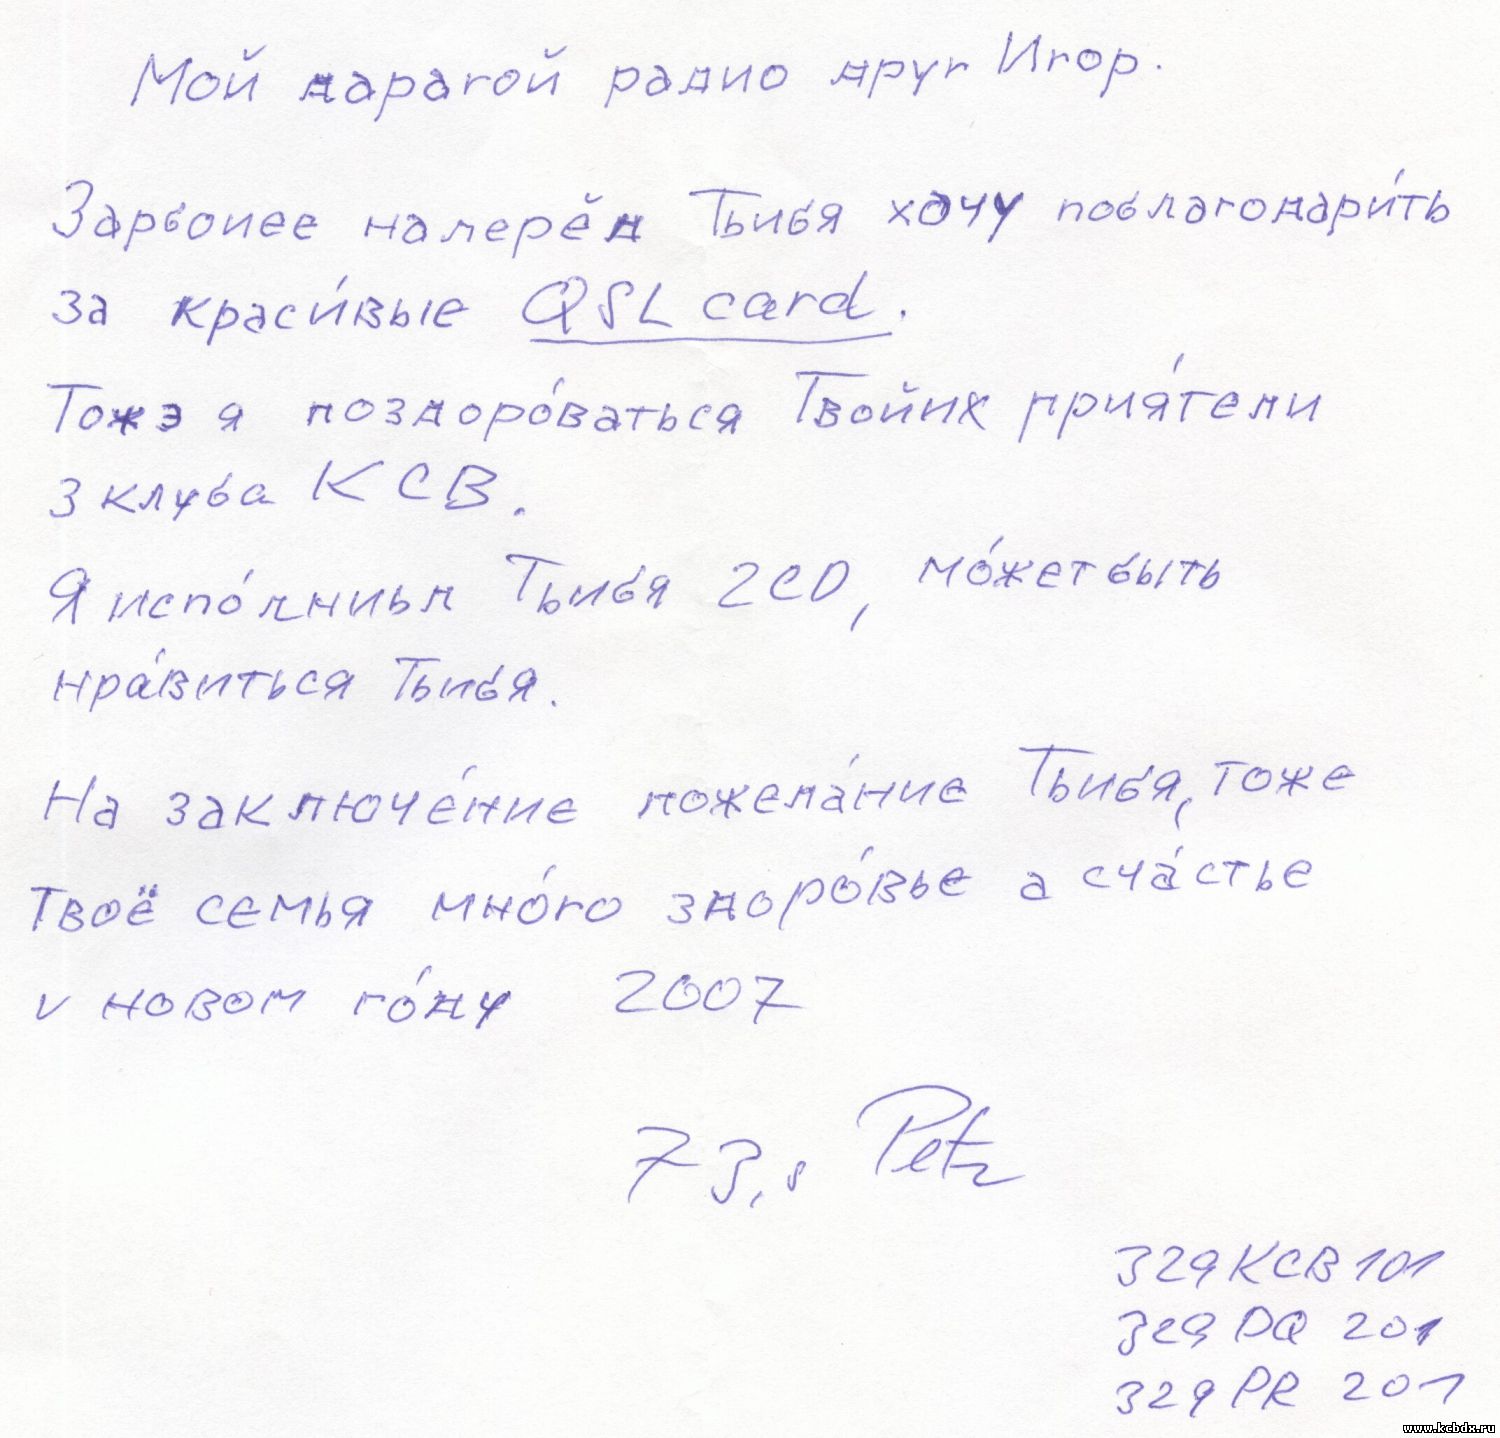 Мой дарагой радио друг Игор.
Зарвопее наперёд Тьибя хачу поблагодари́ть
за краси́вые QSL card.
Тожэ я поздоро́ваться Твойих прия́тели
з клуба КСВ.
Я испо́лниьл Тьибя 2CD, мо́жет быть
нра́виться Тьибя.
На заключе́ние пожела́ние Тьибя, тоже
Твоё семья мно́го здоро́вье а сча́стье
v новом го́ду 2007
73,s Petr
329 KCB 101
329 DQ 201
329 PR 201
www.kcbdx.ru